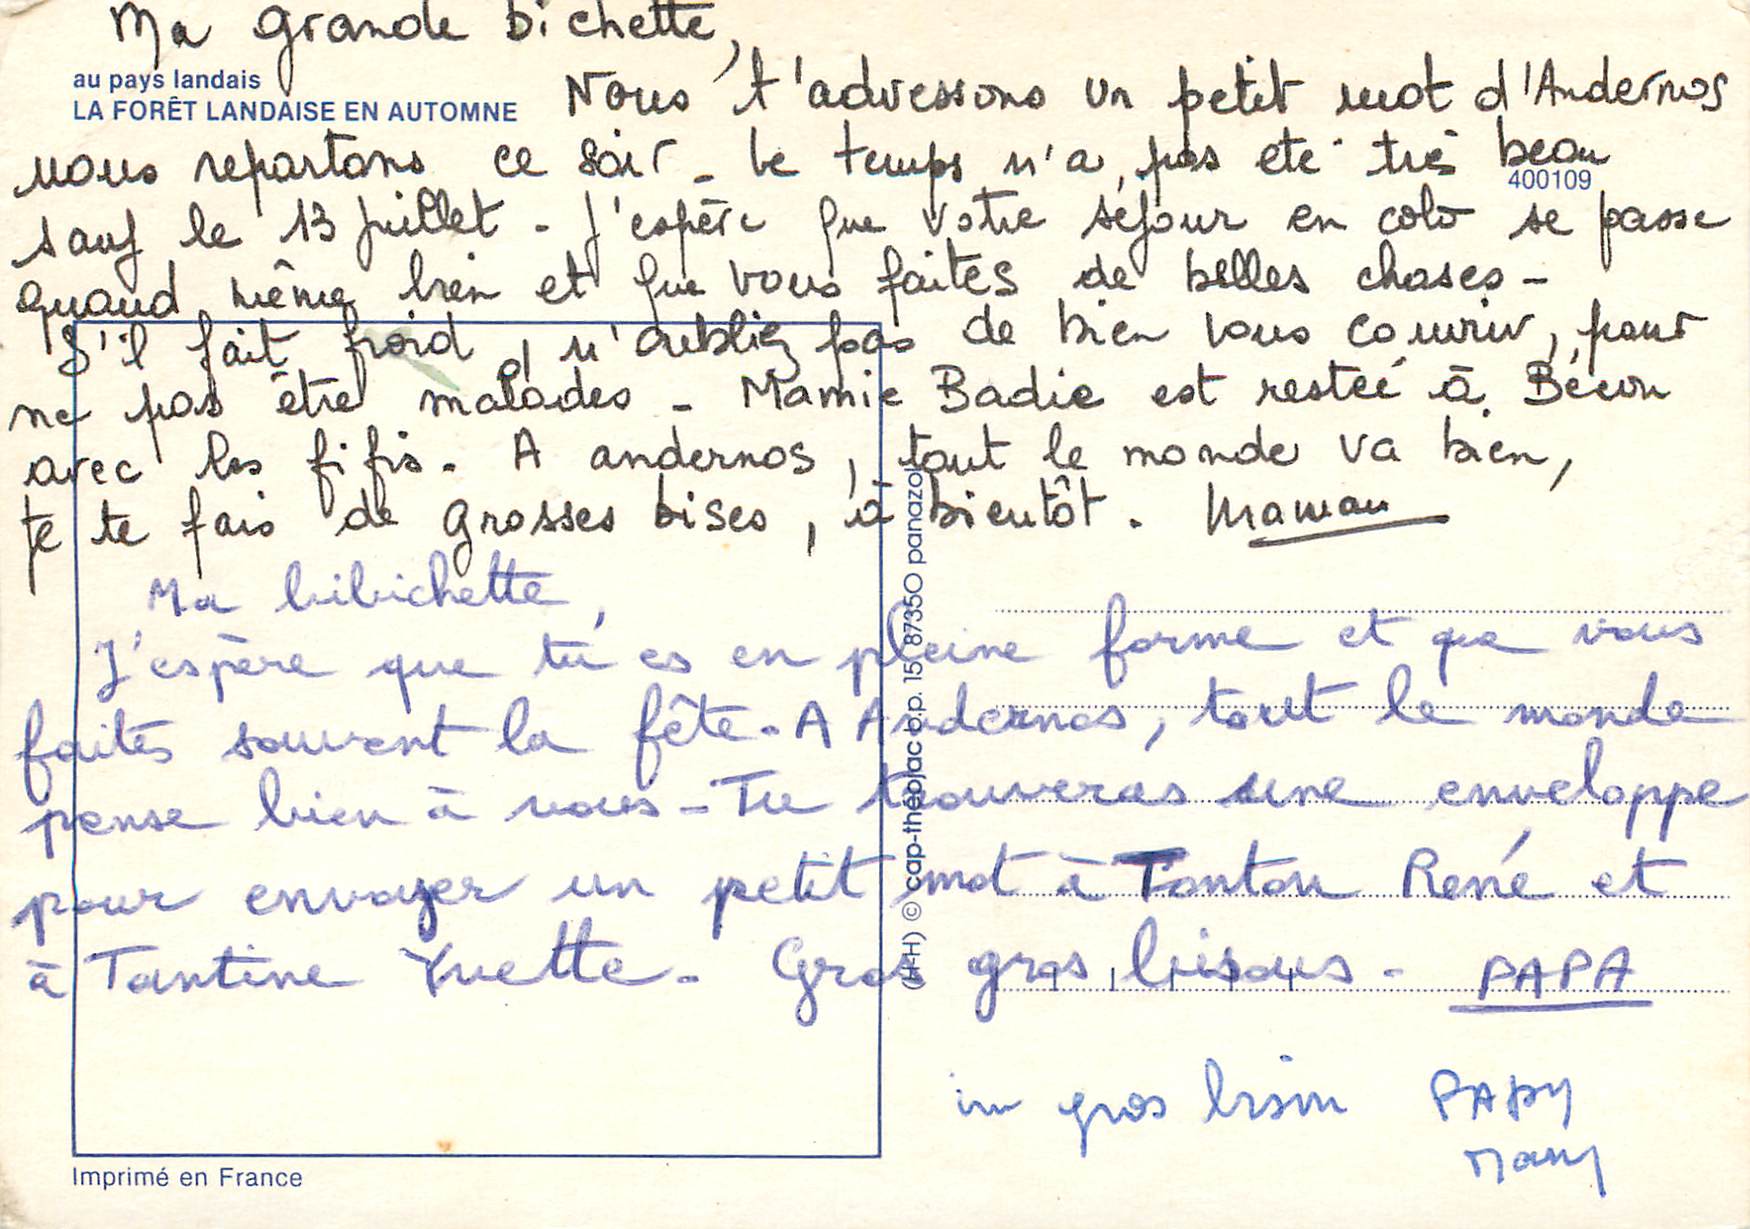 Ma grande bichette,
au pays landais
LA FORÊT LANDAISE EN AUTOMNE
Nous t'adressons un petit mot d'Andernos
nous repartons ce soir - le temps n'a pas eté trè beau
400109
sauf le 13 juillet - J'espère que votre séjour en colo se passe
quand même bien et que vous faites de belles choses -
S'il fait froid, n'oubliez pas de bien vous couvrir, pour
ne pas être malades - Mamie Badie est restée à Bécon
avec les fifis. A andernos, tout le monde va bien,
je te fais de grosses bises, à bientôt. Maman
Ma bibichette,
J'espère que tu es en pleine forme et que vous
faites souvent la fête. A Andernos, tout le monde
pense bien à vous - Tu trouveras une enveloppe
pour envoyer un petit mot à Tonton René et
à Tantine Yvette. Gros gros bisous - PAPA
un gros bisou PAPY
Many
cap-théojac b.p. 15 87350 panazol
Imprimé en France